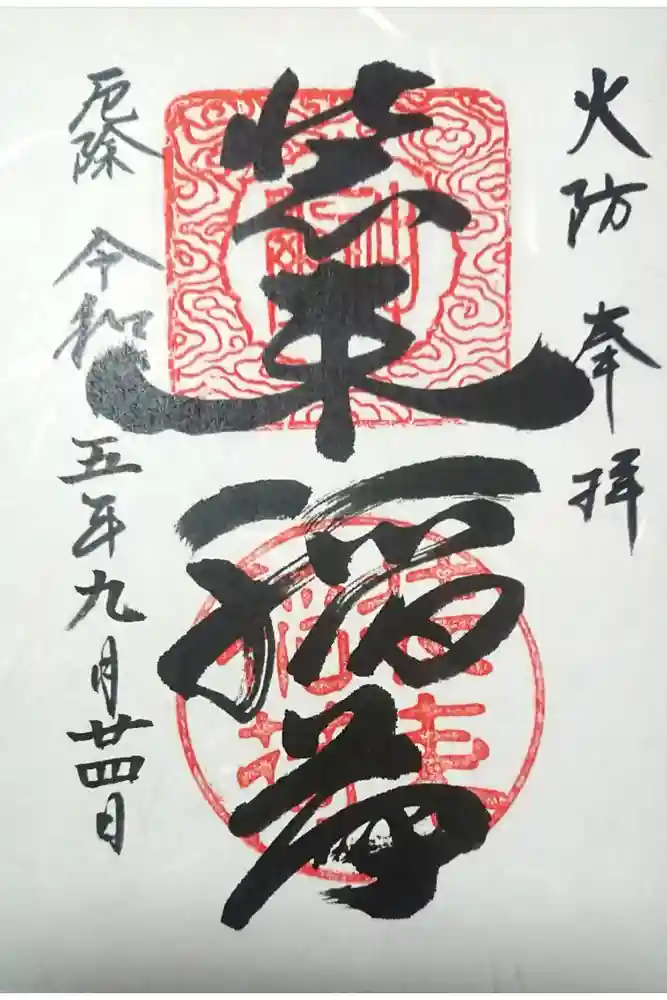 火防 奉拝
装束稲荷
厄除 令和五年九月廿四日